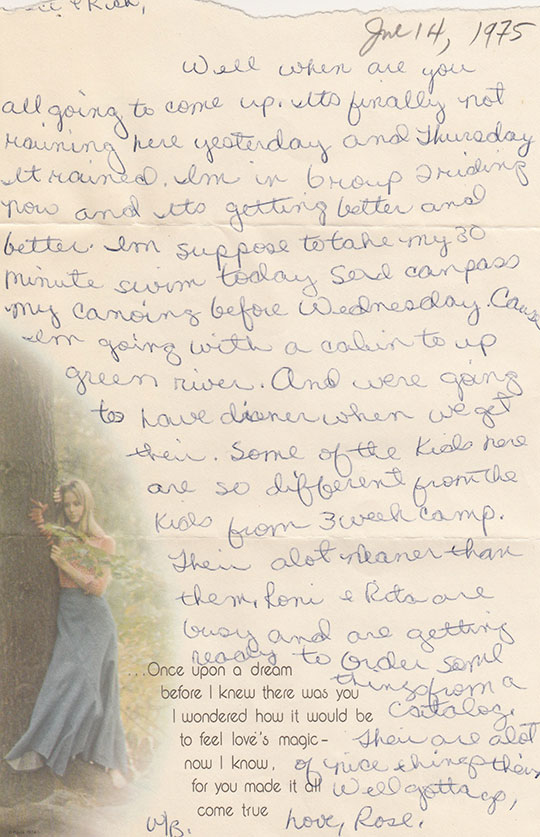 & Rich,
Jul 14, 1975
Well when are you
all going to come up. Its finally not
raining here yesterday and Thursday
it rained. Im in Group 2 riding
now and its getting better and
better. Im suppose to take my 30
minute swim today so I can pass
my canoing before Wednesday. Cause
Im going with a cabin to up
green river. And were going
to have dinner when we get
their. Some of the kids here
are so different from the
kids from 3 week camp.
Their alot meaner than
them. Roni & Rita are
busy and are getting
ready to order some
things from a
catalog.
Their are alot
of nice things their
Well gotta go,
Love, Rose.
W/B.
...Once upon a dream
before I knew there was you
I wondered how it would be
to feel love's magic-
now I know,
for you made it all
come true